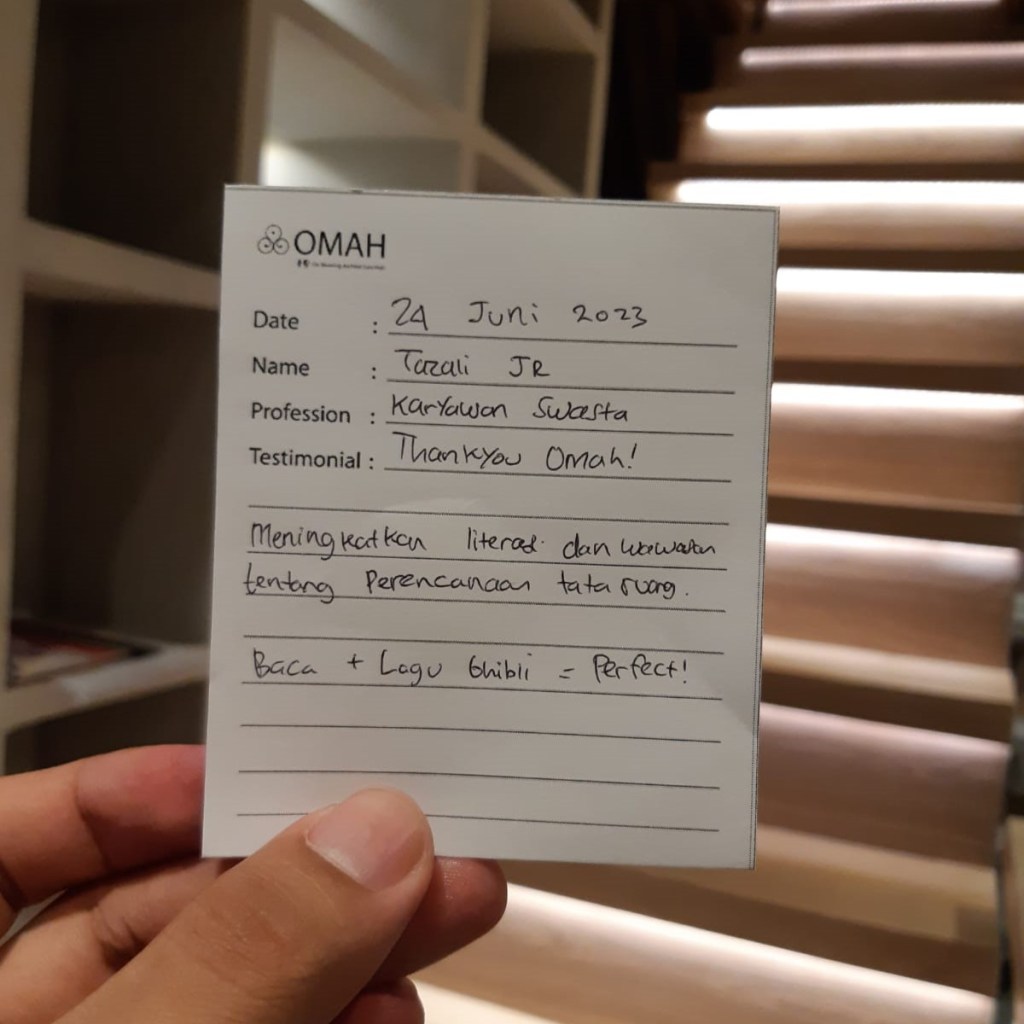 OMAH
Date : 24 Juni 2023
Name : Tazali JR
Profession : Karyawan Swasta
Testimonial : Thankyou Omah!
Meningkatkan literasi dan wawasan
tentang Perencanaan tata ruang.
Baca + Lagu Ghibli = Perfect!